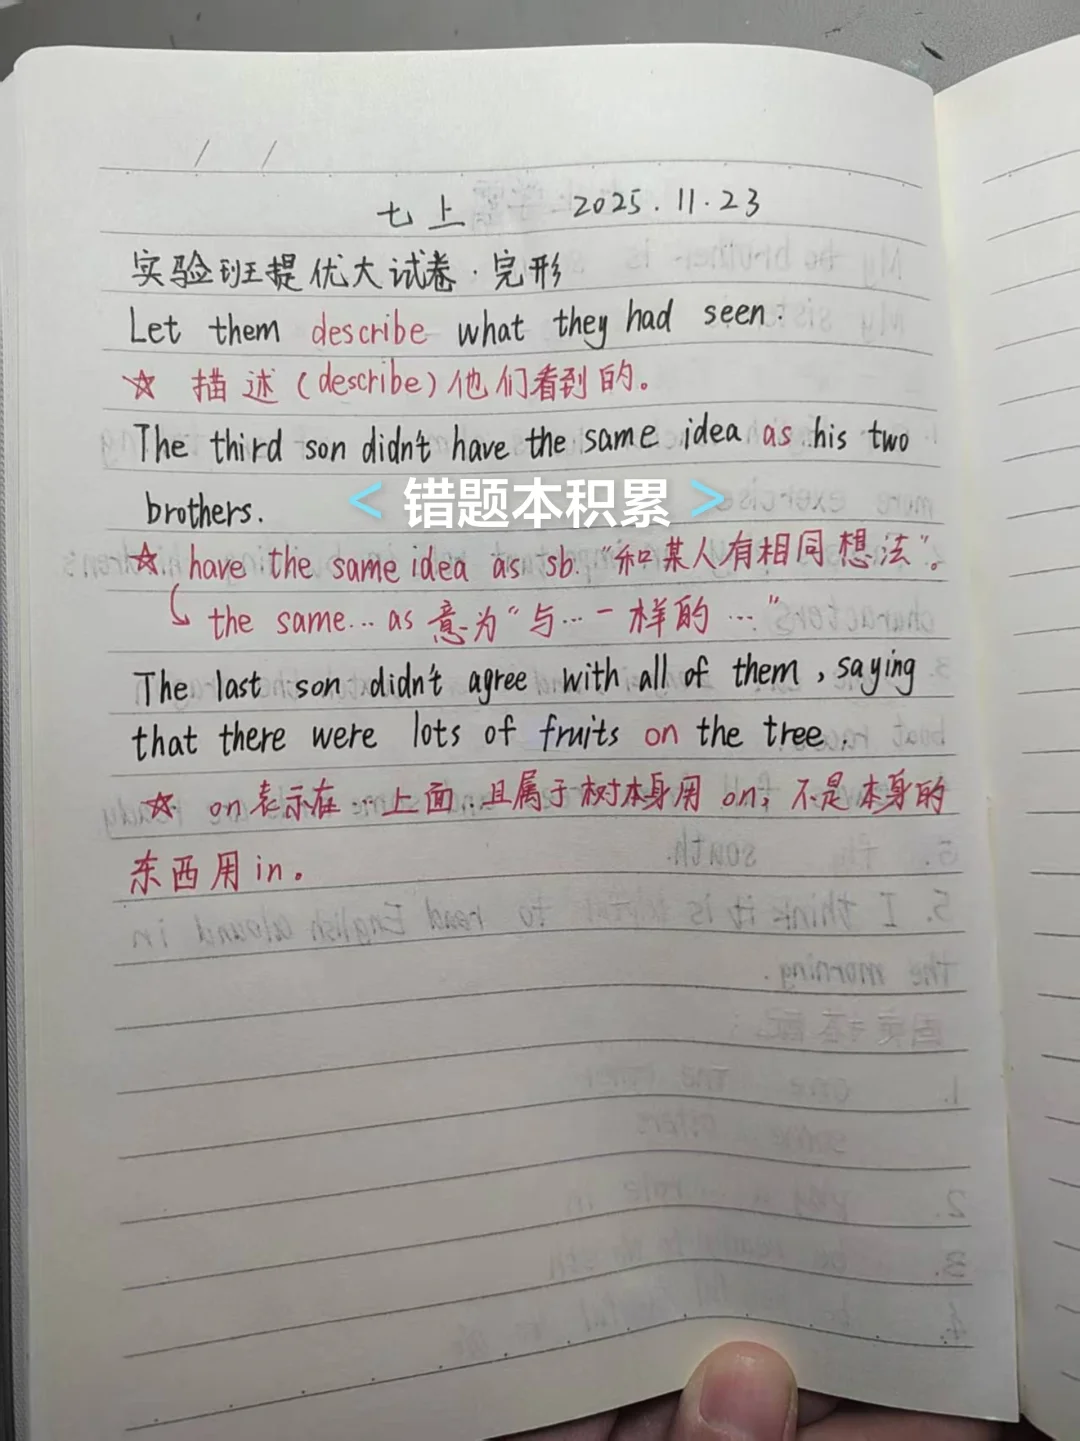 七上 2025.11.23
实验班提优大试卷.完形
Let them describe what they had seen.
☆ 描述(describe)他们看到的。
The third son didn't have the same idea as his two
brothers.
< 错题本积累 >
☆ have the same idea as sb. "和某人有相同想法"。
the same... as 意为"与…一样的…"
The last son didn't agree with all of them, saying
that there were lots of fruits on the tree.
☆ on表示在…上面,且属于树本身用on,不是本身的
东西用in。